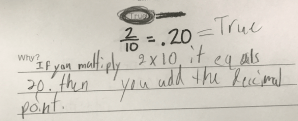 2/10 = .20 = True
Why?
If you multiply 2x10 it eq als
20. then you add the decimal
point.